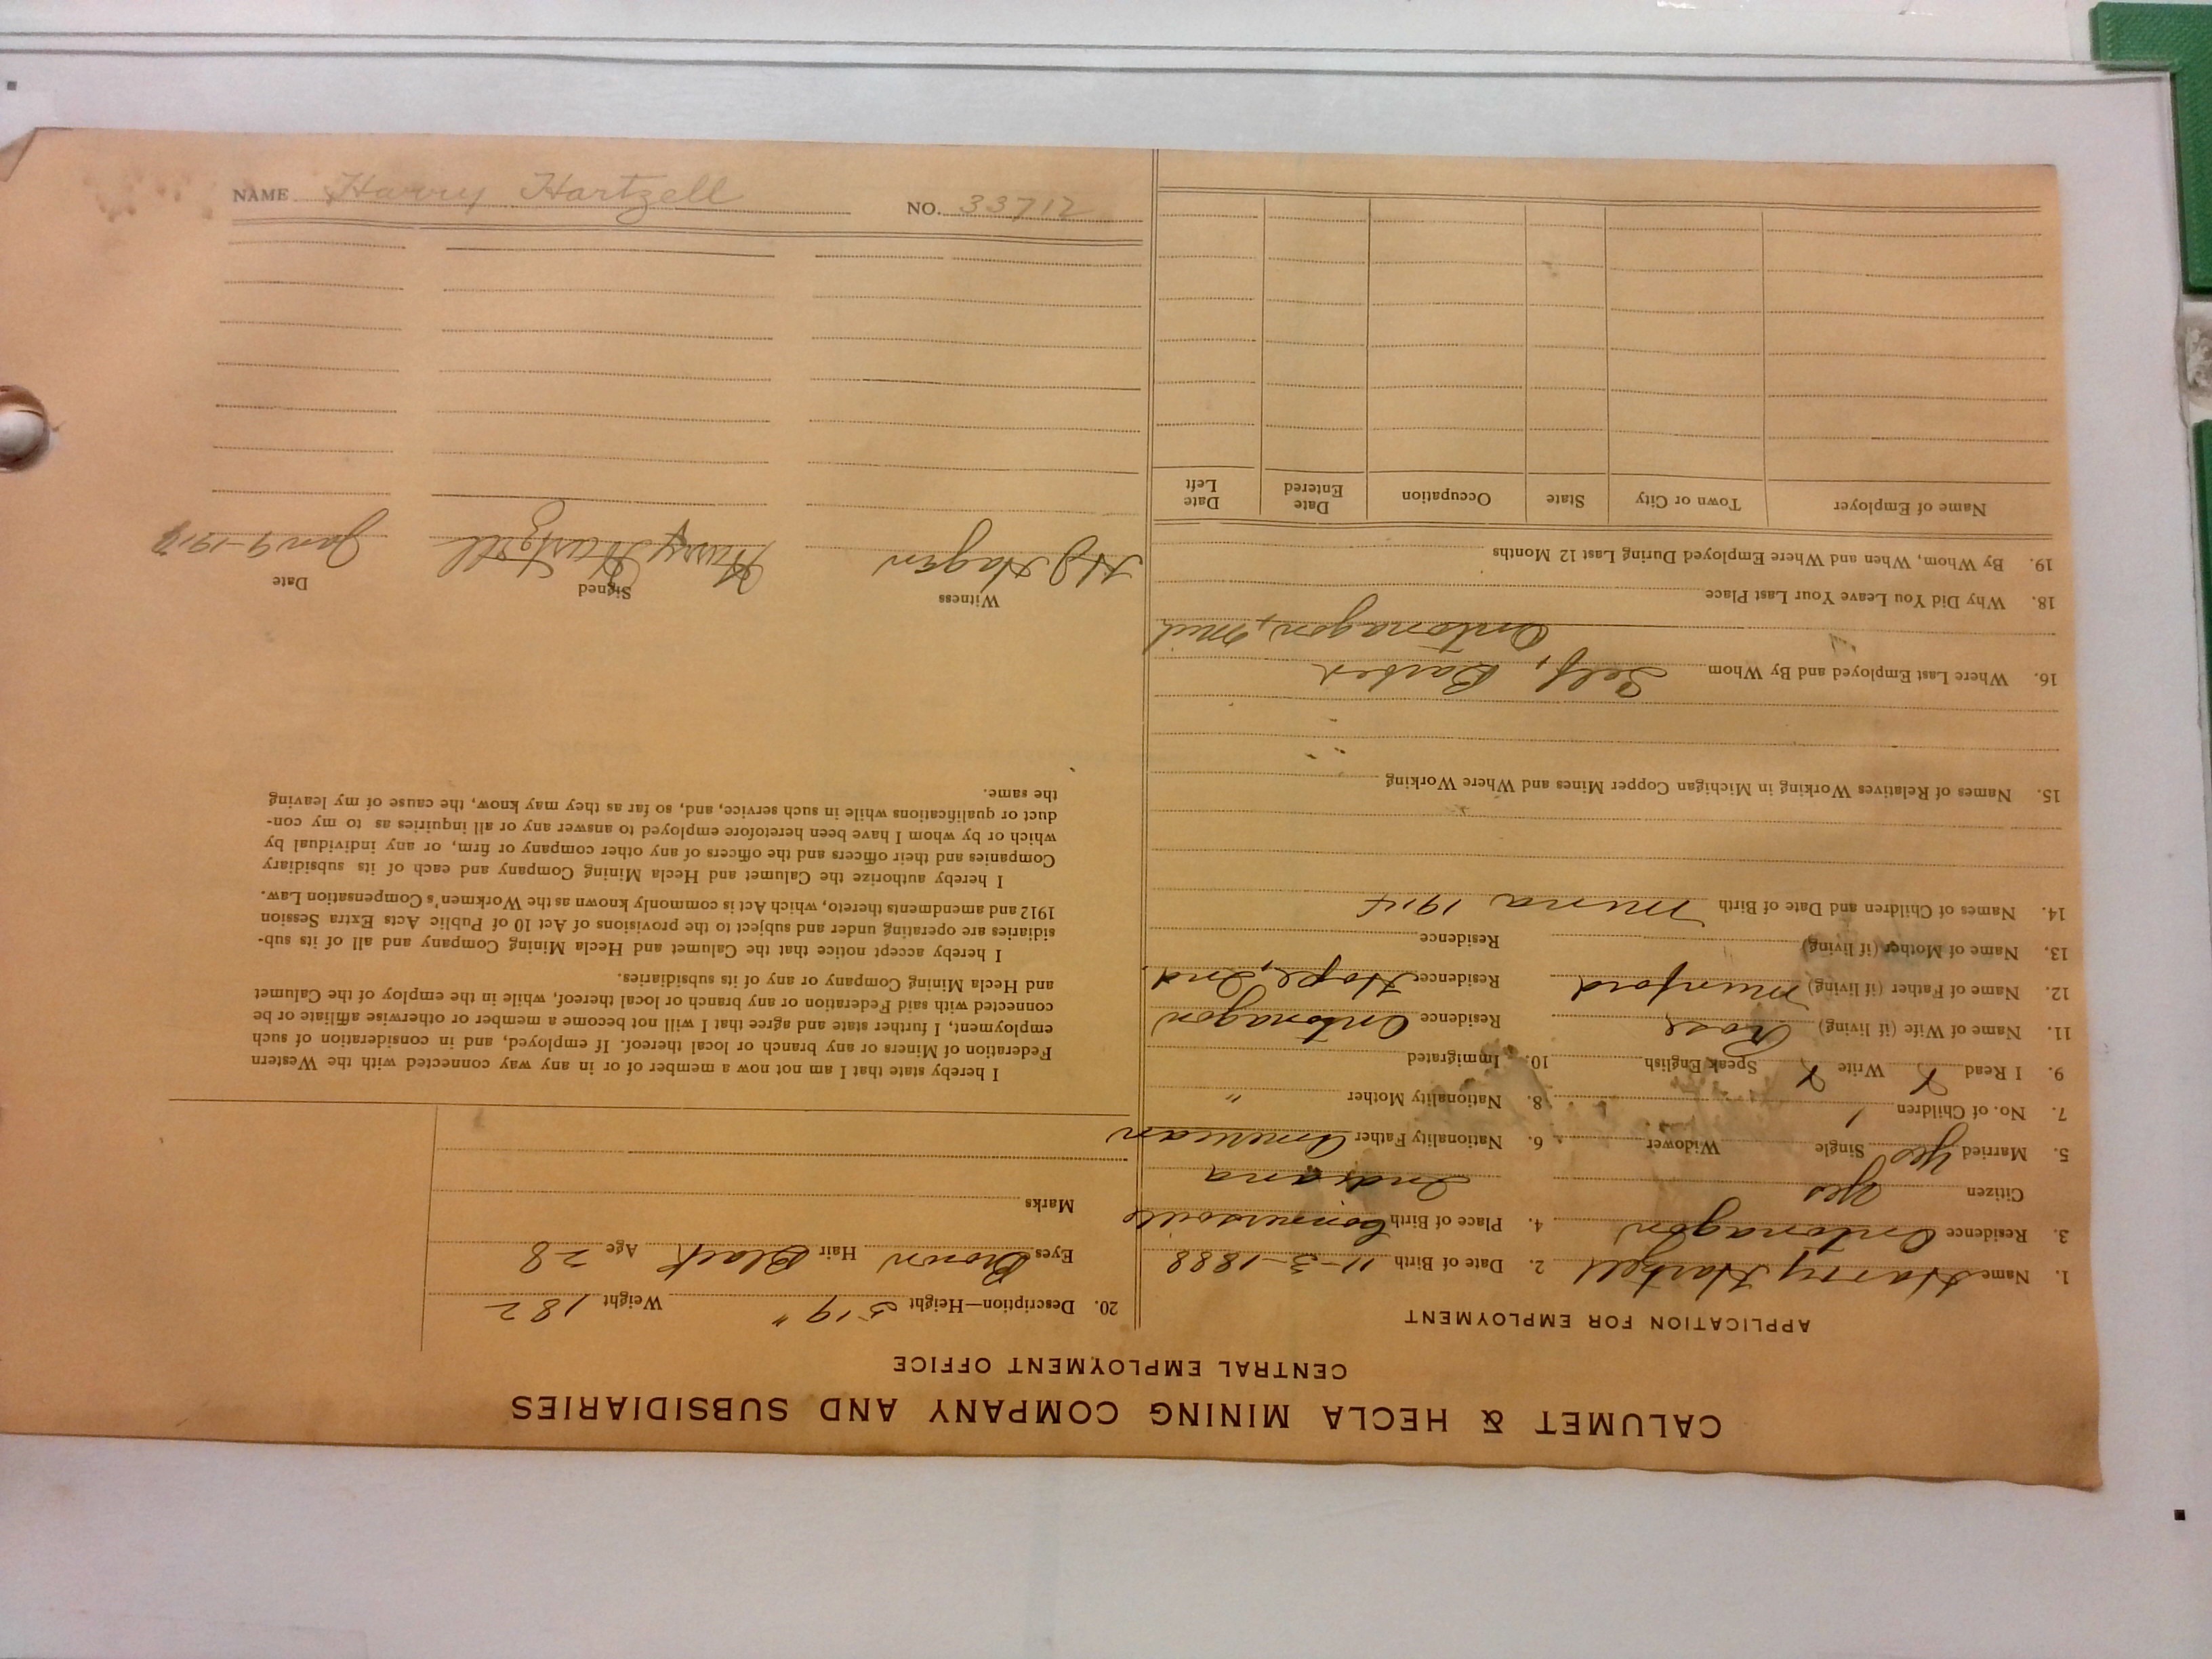 CALUMET & HECLA MINING COMPANY AND SUBSIDIARIES
CENTRAL EMPLOYMENT OFFICE
APPLICATION FOR EMPLOYMENT
1. Name Harry Hartzell 2. Date of Birth 11-3-1888
3. Residence Ontonagon 4. Place of Birth Connersville
Citizen yes Indiana
5. Married yes Single Widower 6. Nationality Father American
7. No. of Children 1 8. Nationality Mother "
9. I Read X Write X Speak English 10. Immigrated
11. Name of Wife (if living) Rose Residence Ontonagon
12. Name of Father (if living) Munford Residence Hope, Ind
13. Name of Mother (if living) Residence
14. Names of Children and Date of Birth 1915
15. Names of Relatives Working in Michigan Copper Mines and Where Working
16. Where Last Employed and By Whom Self, Barber
Ontonagon, Mich
18. Why Did You Leave Your Last Place
19. By Whom, When and Where Employed During Last 12 Months
Name of Employer Town or City State Occupation Date Entered Date Left
20. Description—Height 5'9" Weight 182
Eyes Brown Hair Black Age 28
Marks
I hereby state that I am not now a member of or in any way connected with the Western
Federation of Miners or any branch or local thereof. If employed, and in consideration of such
employment, I further state and agree that I will not become a member or otherwise affiliate or be
connected with said Federation or any branch or local thereof, while in the employ of the Calumet
and Hecla Mining Company or any of its subsidiaries.
I hereby accept notice that the Calumet and Hecla Mining Company and all of its sub-
sidiaries are operating under and subject to the provisions of Act 10 of Public Acts Extra Session
1912 and amendments thereto, which Act is commonly known as the Workmen's Compensation Law.
I hereby authorize the Calumet and Hecla Mining Company and each of its subsidiary
Companies and their officers and the officers of any other company or firm, or any individual by
which or by whom I have been heretofore employed to answer any or all inquiries as to my con-
duct or qualifications while in such service, and, so far as they may know, the cause of my leaving
the same.
Witness Signed Date
H J Hagen Harry Hartzell Jan 9-1918
NAME Harry Hartzell NO. 33712